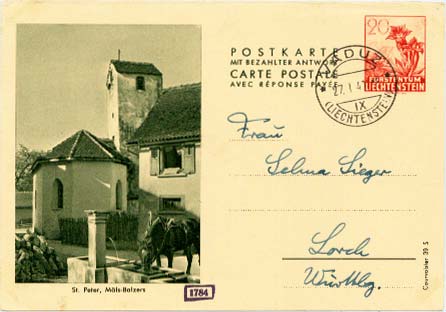 POSTKARTE
MIT BEZAHLTER ANTWORT
CARTE POSTALE
AVEC RÉPONSE PAYÉE
20
FÜRSTENTUM
LIECHTENSTEIN
VADUZ
27. I. 4
IX
(LIECHTENSTEIN)
Frau
Selma Sieger
Lorch
Württbg.
St. Peter, Mäls-Balzers
1784
Courvoisier 39 S